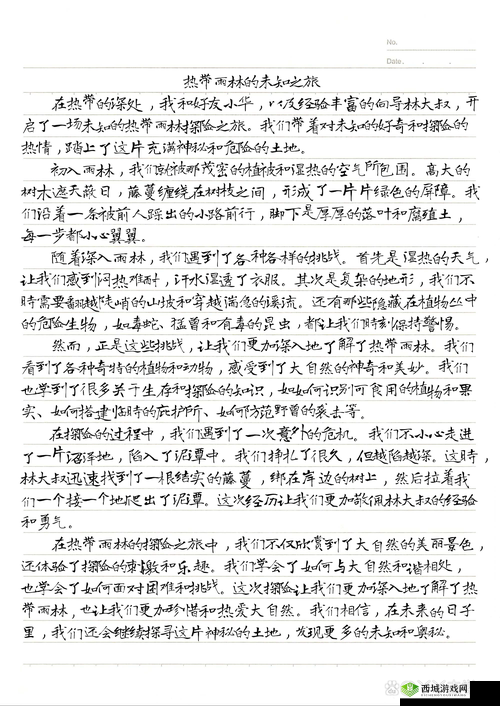 No.
Date.
热带雨林的未知之旅
在热带的深处，我和好友小华，以及经验丰富的向导林大叔，开
启了一场未知的热带雨林探险之旅。我们带着对未知的好奇和探险的
热情，踏上了这片充满神秘和危险的土地。
初入雨林，我们就被那茂密的植被和湿热的空气所包围。高大的
树木遮天蔽日，藤蔓缠绕在树枝之间，形成了一片片绿色的屏障。我
们沿着一条被前人踩出的小路前行，脚下是厚厚的落叶和腐殖土，
每一步都小心翼翼。
随着深入雨林，我们遇到了各种各样的挑战。首先是湿热的天气，
让我们感到闷热难耐，汗水湿透了衣服。其次是复杂的地形，我们不
时需要翻越陡峭的山坡和穿越湍急的溪流。还有那些隐藏在植物丛中
的危险生物，如毒蛇、猛兽和有毒的昆虫，都让我们时刻保持警惕。
然而，正是这些挑战，让我们更加深入地了解了热带雨林。我们
看到了各种奇特的植物和动物，感受到了大自然的神奇和美妙。我们
也学到了很多关于生存和探险的知识，如如何识别可食用的植物和果
实、如何搭建临时的庇护所、如何防范野兽的袭击等。
在探险的过程中，我们遇到了一次意外的危机。我们不小心走进
了一片沼泽地，陷入了泥潭中。我们挣扎了很久，但越陷越深。这时，
林大叔迅速找到了一根结实的藤蔓，绑在岸边的树上，然后拉着我
们一个接一个地爬出了泥潭。这次经历让我们更加敬佩林大叔的经验
和勇气。
在热带雨林的探险之旅中，我们不仅欣赏到了大自然的美丽景色，
还体验了探险的刺激和乐趣。我们学会了如何与大自然和谐相处，
也学会了如何面对困难和挑战。这次探险让我们更加深入地了解了热
带雨林，也让我们更加珍惜和热爱大自然。我们相信，在未来的日子
里，我们还会继续探寻这片神秘的土地，发现更多的未知和奥秘。
西城游戏网